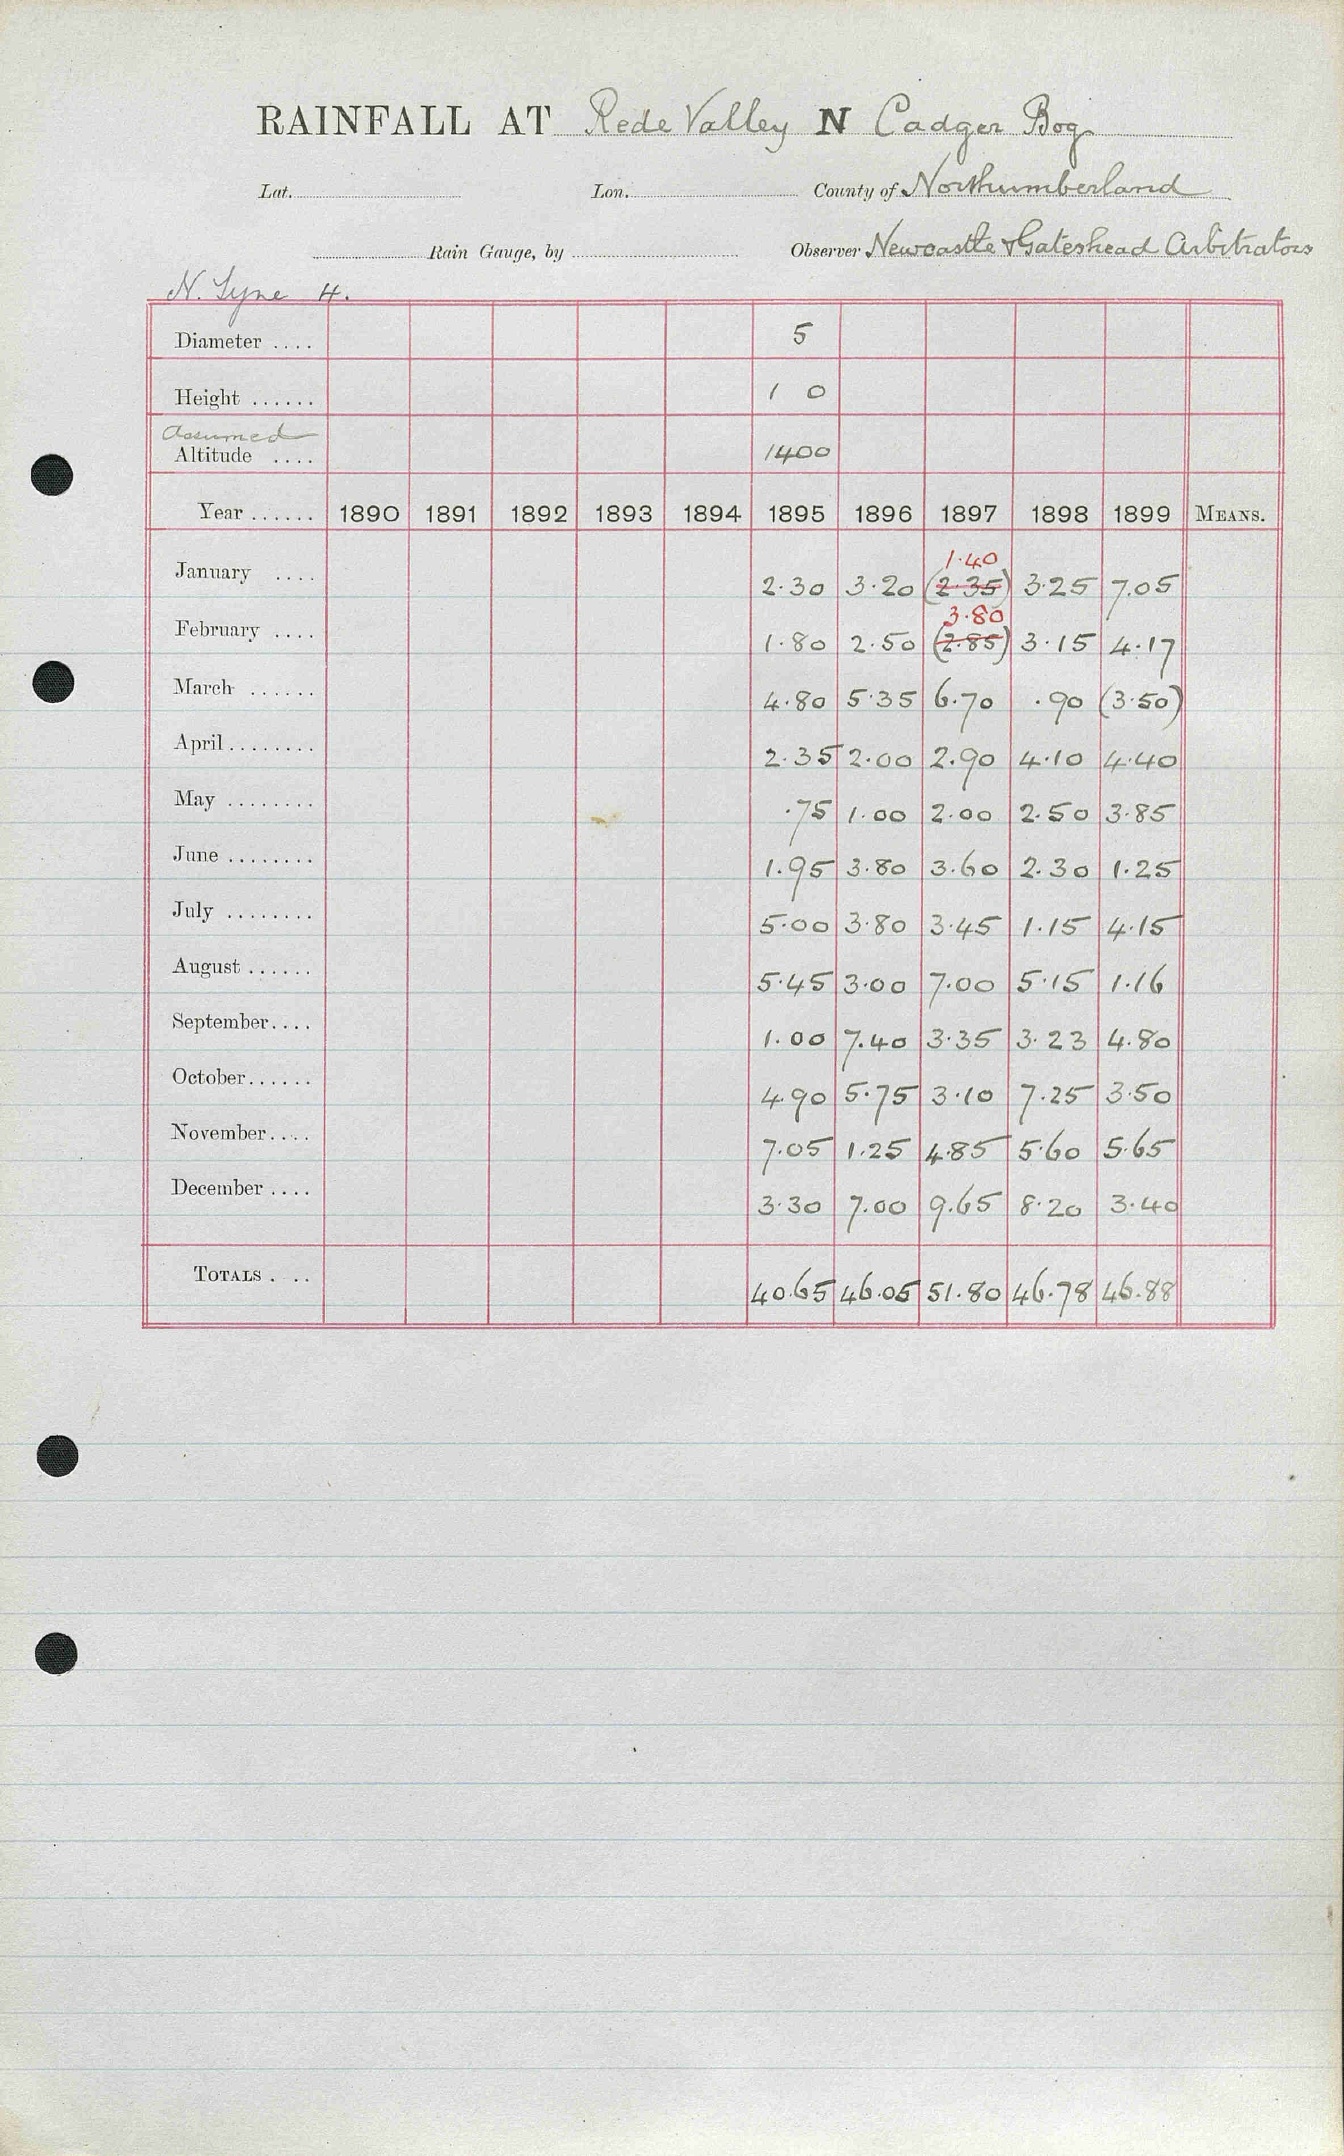 RAINFALL AT Rede Valley N Cadger Bog
Lat. Lon. County of Northumberland
Rain Gauge, by Observer Newcastle & Gateshead Arbitrators
N. Tyne 4.
Diameter .... 5
Height ...... 1 0
Assumed
Altitude .... 1400
Year ...... 1890 1891 1892 1893 1894 1895 1896 1897 1898 1899 MEANS.
1.40
January .... 2.30 3.20 (2.35) 3.25 7.05
3.80
February .... 1.80 2.50 (2.85) 3.15 4.17
March ...... 4.80 5.35 6.70 .90 (3.50)
April........ 2.35 2.00 2.90 4.10 4.40
May ........ .75 1.00 2.00 2.50 3.85
June ........ 1.95 3.80 3.60 2.30 1.25
July ........ 5.00 3.80 3.45 1.15 4.15
August ...... 5.45 3.00 7.00 5.15 1.16
September.... 1.00 7.40 3.35 3.23 4.80
October...... 4.90 5.75 3.10 7.25 3.50
November.... 7.05 1.25 4.85 5.60 5.65
December .... 3.30 7.00 9.65 8.20 3.40
TOTALS . .. 40.65 46.05 51.80 46.78 46.88